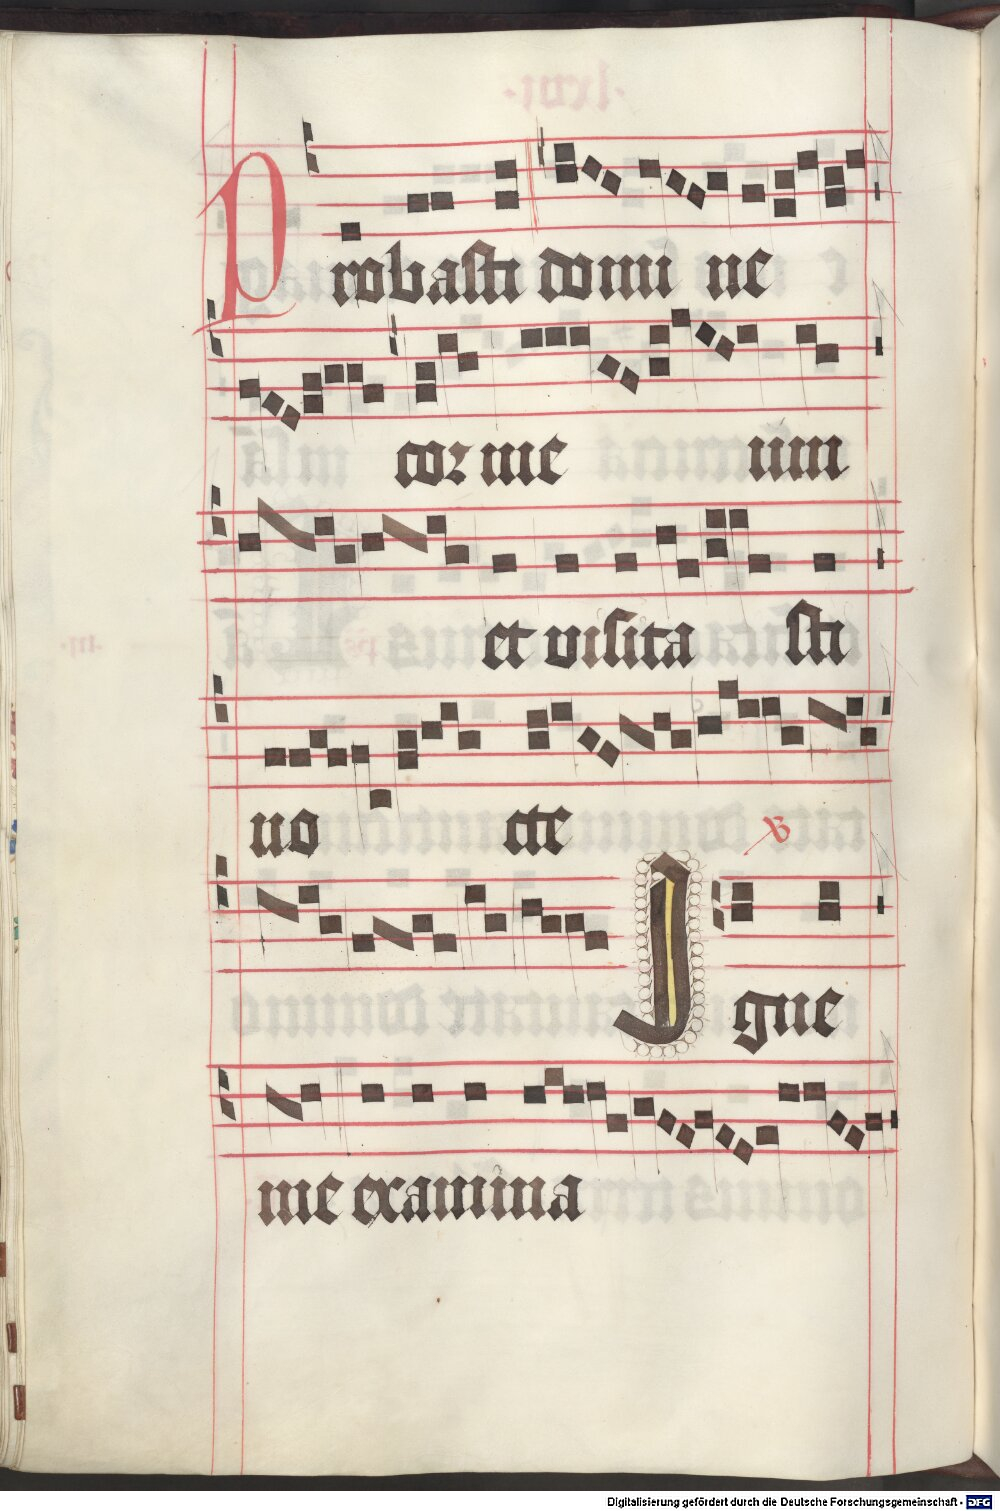 Probasti domine
cor meum
et visitasti
nocte
℣
Igne
me examina
Digitalisierung gefördert durch die Deutsche Forschungsgemeinschaft - DFG